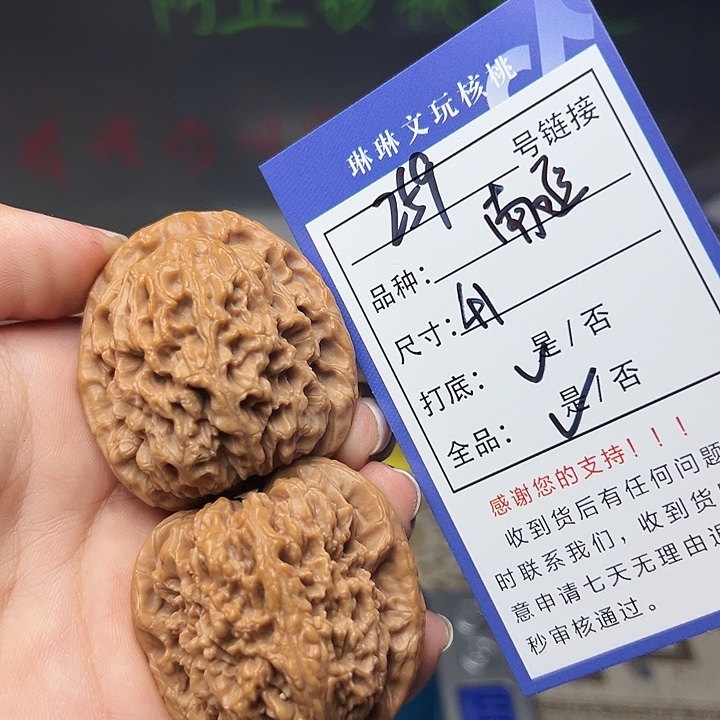 琳琳文玩核桃
259号链接
品种：南疆
尺寸：41
打底：是/否
全品：是/否
感谢您的支持！！！
收到货后有任何问题
时联系我们，收到货
意申请七天无理由
秒审核通过。